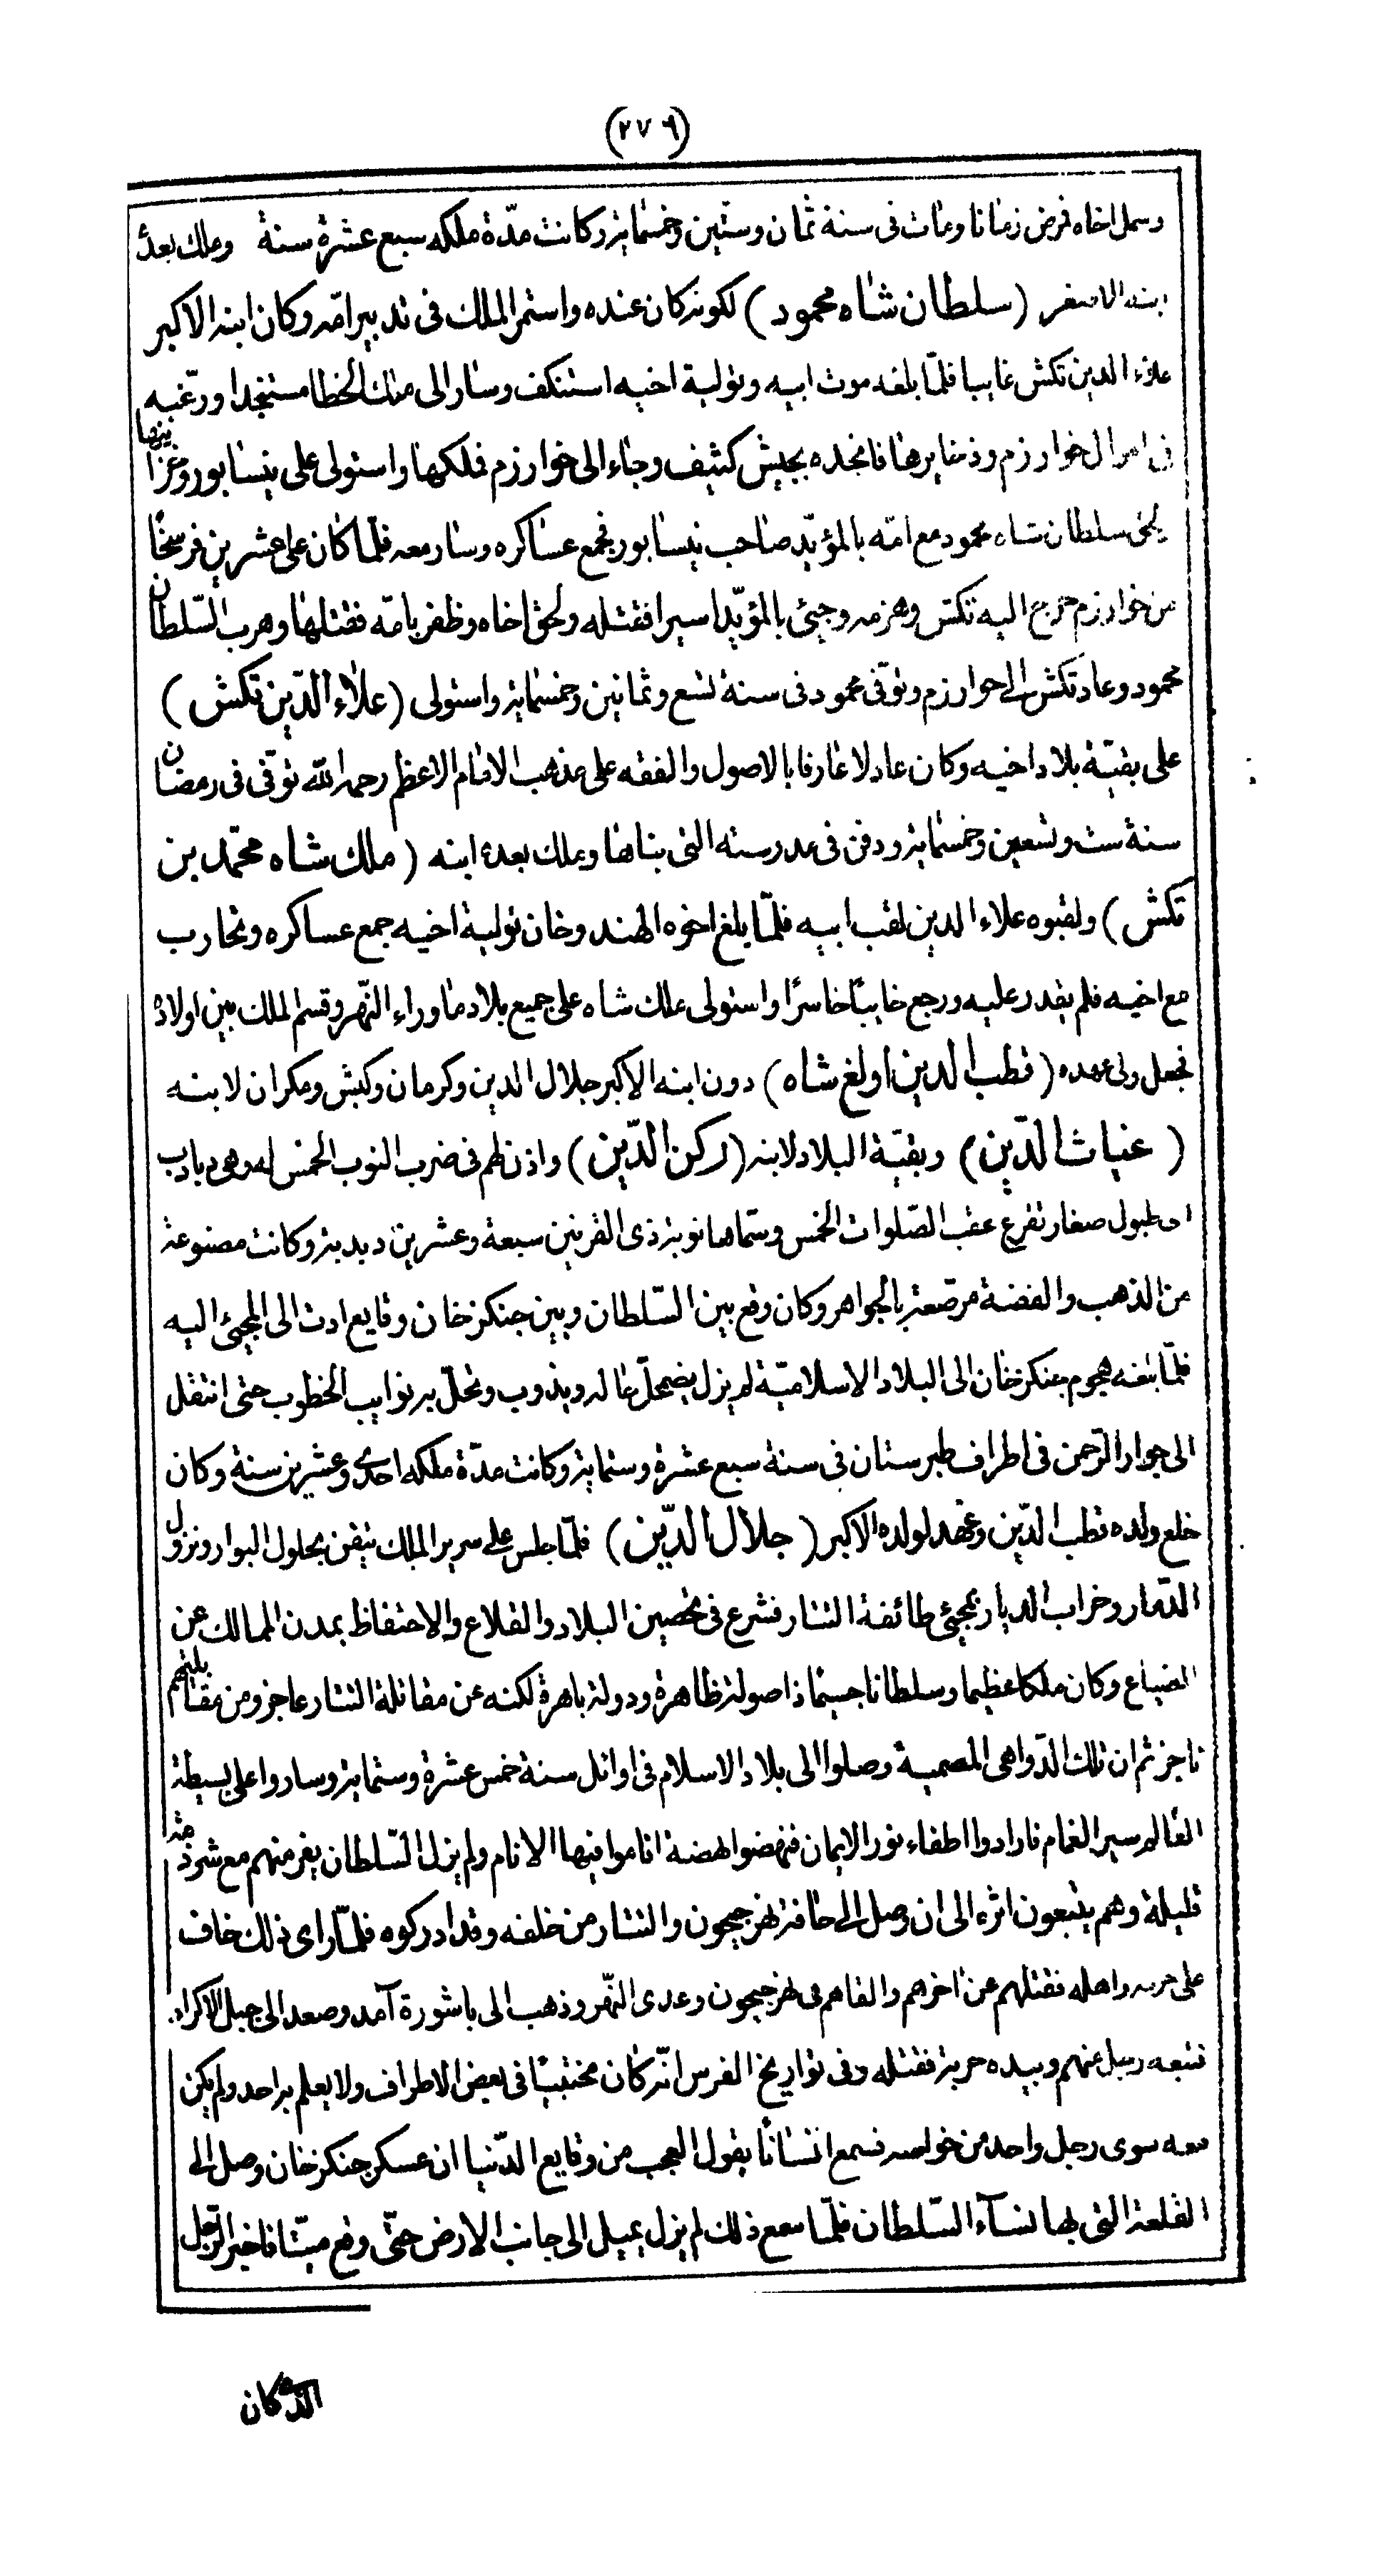 (٢٧٩)
وسمل اخاه فرض زمانا ومات فى سنة ثمان وستين وخمسماية وكانت مدّة ملكه سبع عشرة سنة وملك بعده
ابنه الاصغر (سلطان شاه محمود) لكونه كان عنده واستمر الملك فى تدبير امّه وكان ابنه الاكبر
علاء الدين تكش غايبا فلمّا بلغه موت ابيه وتولية اخيه استنكف وسار الى ملك الخطا مستنجدا ورغّبه
فى اموال خوارزم وذخايرها فانجده بجيش كثيف وجاء الى خوارزم فملكها واستولى على نيسابور وغزا
يلحق سلطان شاه محمود مع امّه بالمؤيّد صاحب نيسابور فجمع عساكره وسار معه فلمّا كان على عشرين فرسخًا
من خوارزم خرج اليه تكش وهزمه وجيئ بالمؤيّد اسيرا فقتله ولحق اخاه وظفر بامّه فقتلها وهرب السّلطان
محمود وعاد تكش الى خوارزم وتوفّى محمود فى سنة تسع وثمانين وخمسماية واستولى (علاء الدّين تكش)
على بقيّة بلاد اخيه وكان عادلا عارفا بالاصول والفقه على مذهب الامام الاعظم رحمه الله توفّى فى رمضان
سنة ست وتسعين وخمسماية ودفن فى مدرسته التى بناها وملك بعده ابنه (ملك شاه محمّد بن
تكش) ولقبوه علاء الدين لقب ابيه فلمّا بلغ اخوه الهند وخان تولية اخيه جمع عساكره وتحارب
مع اخيه فلم يقدر عليه ورجع خايبًا خاسرًا واستولى ملك شاه على جميع بلاد ماوراء النّهر وقسم الملك بين اولاده
فجعل ولى عهده (قطب الدين اولغ شاه) دون ابنه الاكبر جلال الدين وكرمان وكبش ومكران لابنه
(غياث الدّين) وبقيّة البلاد لابنه (ركن الدّين) واذن لهم فى ضرب النوب الخمس له وهى دبادب
اى طبول صغار تقرع عقب الصّلوات الخمس وسمّاها نوبة ذى القرنين سبعة وعشرين دبدبة وكانت مصنوعة
من الذهب والفضة مرصّعة بالجواهر وكان وقع بين السّلطان وبين جنكز خان وقايع ادت الى المجيئ اليه
فلمّا بلغه هجوم جنكز خان الى البلاد الاسلاميّة لم يزل يضمحلّ حاله ويذوب وتحلّ به نوايب الخطوب حتى انتقل
الى جوار الرّحمن فى اطراف طبرستان فى سنة سبع عشرة وستماية وكانت مدّة ملكه احدى وعشرين سنة وكان
خلع ولده قطب الدّين وعهد لولده الاكبر (جلال الدّين) فلمّا جلس على سرير الملك تيقن بحلول البوار ونزول
الدّمار وخراب الديار بمجيئ طائفة التتار فشرع فى تحصين البلاد والقلاع والاحتفاظ بمدن الممالك عن
الضياع وكان ملكا عظيما وسلطانا جسيمًا ذا صولة ظاهرة ودولة باهرة لكنه عن مقاتلة التتار عاجز ومن مقابلتهم
ناجز ثم ان تلك الدّواهى المصمية وصلوا الى بلاد الاسلام فى اوائل سنة خمس عشرة وستماية وساروا على بسيطة
العالم سير الغمام فارادوا اطفاء نور الايمان فنهضوا لهضة اناموا فيها الانام ولم يزل السّلطان يفر منهم مع شرذمة
قليلة وهم يتبعون اثره الى ان وصل الى حافة نهر جيحون والتتار من خلفه وقد ادركوه فلمّا راى ذلك خاف
على حرمه واهله فقتلهم عن اخرهم والقاهم فى نهر جيحون وعدى النّهر وذهب الى باشورة آمد وصعد الى جبل الاكراد
فتبعه رجل منهم وبيده حربة فقتله وفى تواريخ الفرس انّه كان مختبيًا فى بعض الاطراف ولا يعلم به احد ولم يكن
معه سوى رجل واحد من خواصه فسمع انسانًا يقول العجب من وقايع الدّنيا ان عسكر جنكز خان وصل الى
القلعة التى بها نسآء السّلطان فلمّا سمع ذلك لم يزل يميل الى جانب الارض حتّى وقع ميتًا فاخبر الرّجل
الذى كان